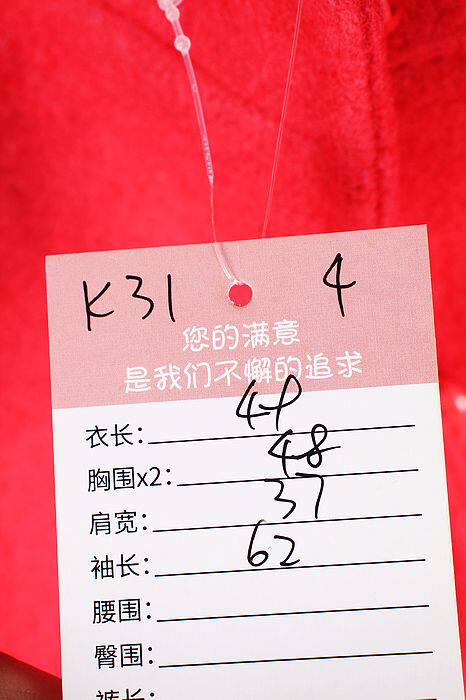 K31 4
您的满意
是我们不懈的追求
衣长: 49
胸围x2: 48
肩宽: 37
袖长: 62
腰围:
臀围:
裤长: